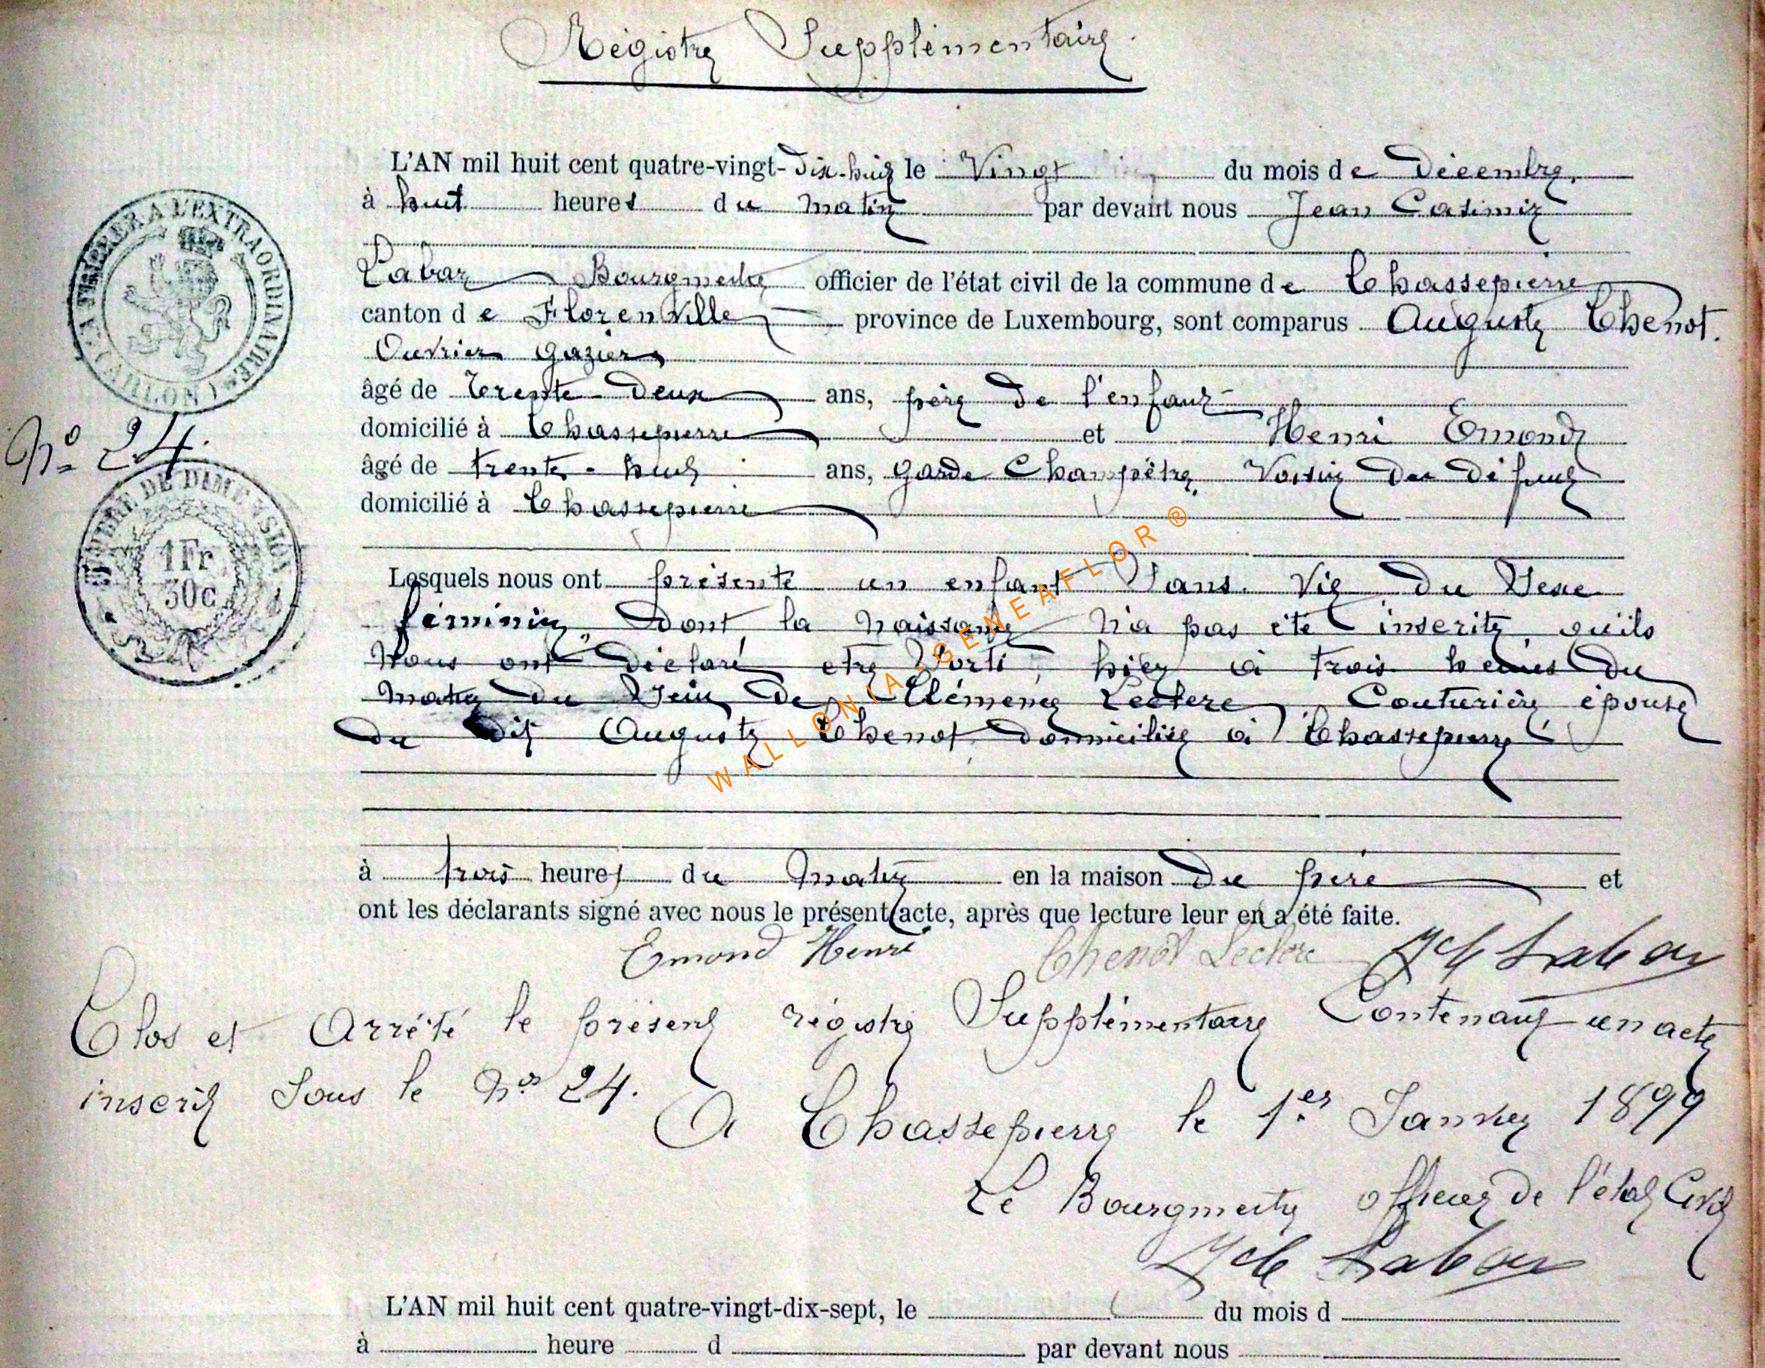 Régistre Supplémentaire.
L'AN mil huit cent quatre-vingt-dix-huit le Vingt du mois de Décembre,
à huit heures du matin par devant nous Jean Casimir
Labar Bourgmestre officier de l'état civil de la commune de Chassepierre
canton de Florenville province de Luxembourg, sont comparus Auguste Chenot.
Ouvrier gazier,
âgé de trente-deux ans, père de l'enfant
domicilié à Chassepierre et Henri Emond
âgé de trente-huit ans, garde Champêtre, Voisin du défunt
domicilié à Chassepierre
Lesquels nous ont présenté un enfant Sans Vie du Sexe
féminin, dont la naissance n'a pas été inscrite, qu'ils
Nous ont déclaré etre Sorti hier à trois heures du
matin du Sein de Clémence Leclere, Couturière épouse
du dit Auguste Chenot domiciliée à Chassepierre
à trois heures du matin en la maison du père et
ont les déclarants signé avec nous le présent acte, après que lecture leur en a été faite.
Emond Henri Chenot Leclere Jch Labar
Clos et Arrété le présent régistre Supplémentaire Contenant un acte
inscrit Sous le No 24. A Chassepierre le 1er Janvier 1899
Le Bourgmestre officier de l'état Civil
Jch Labar
L'AN mil huit cent quatre-vingt-dix-sept, le du mois d
à heure d par devant nous
A TIMBRER A L'EXTRAORDINAIRE
(ARLON)
No 24.
TIMBRE DE DIMENSION
1Fr
30c
WALLONIA-GENEAFLOR ®